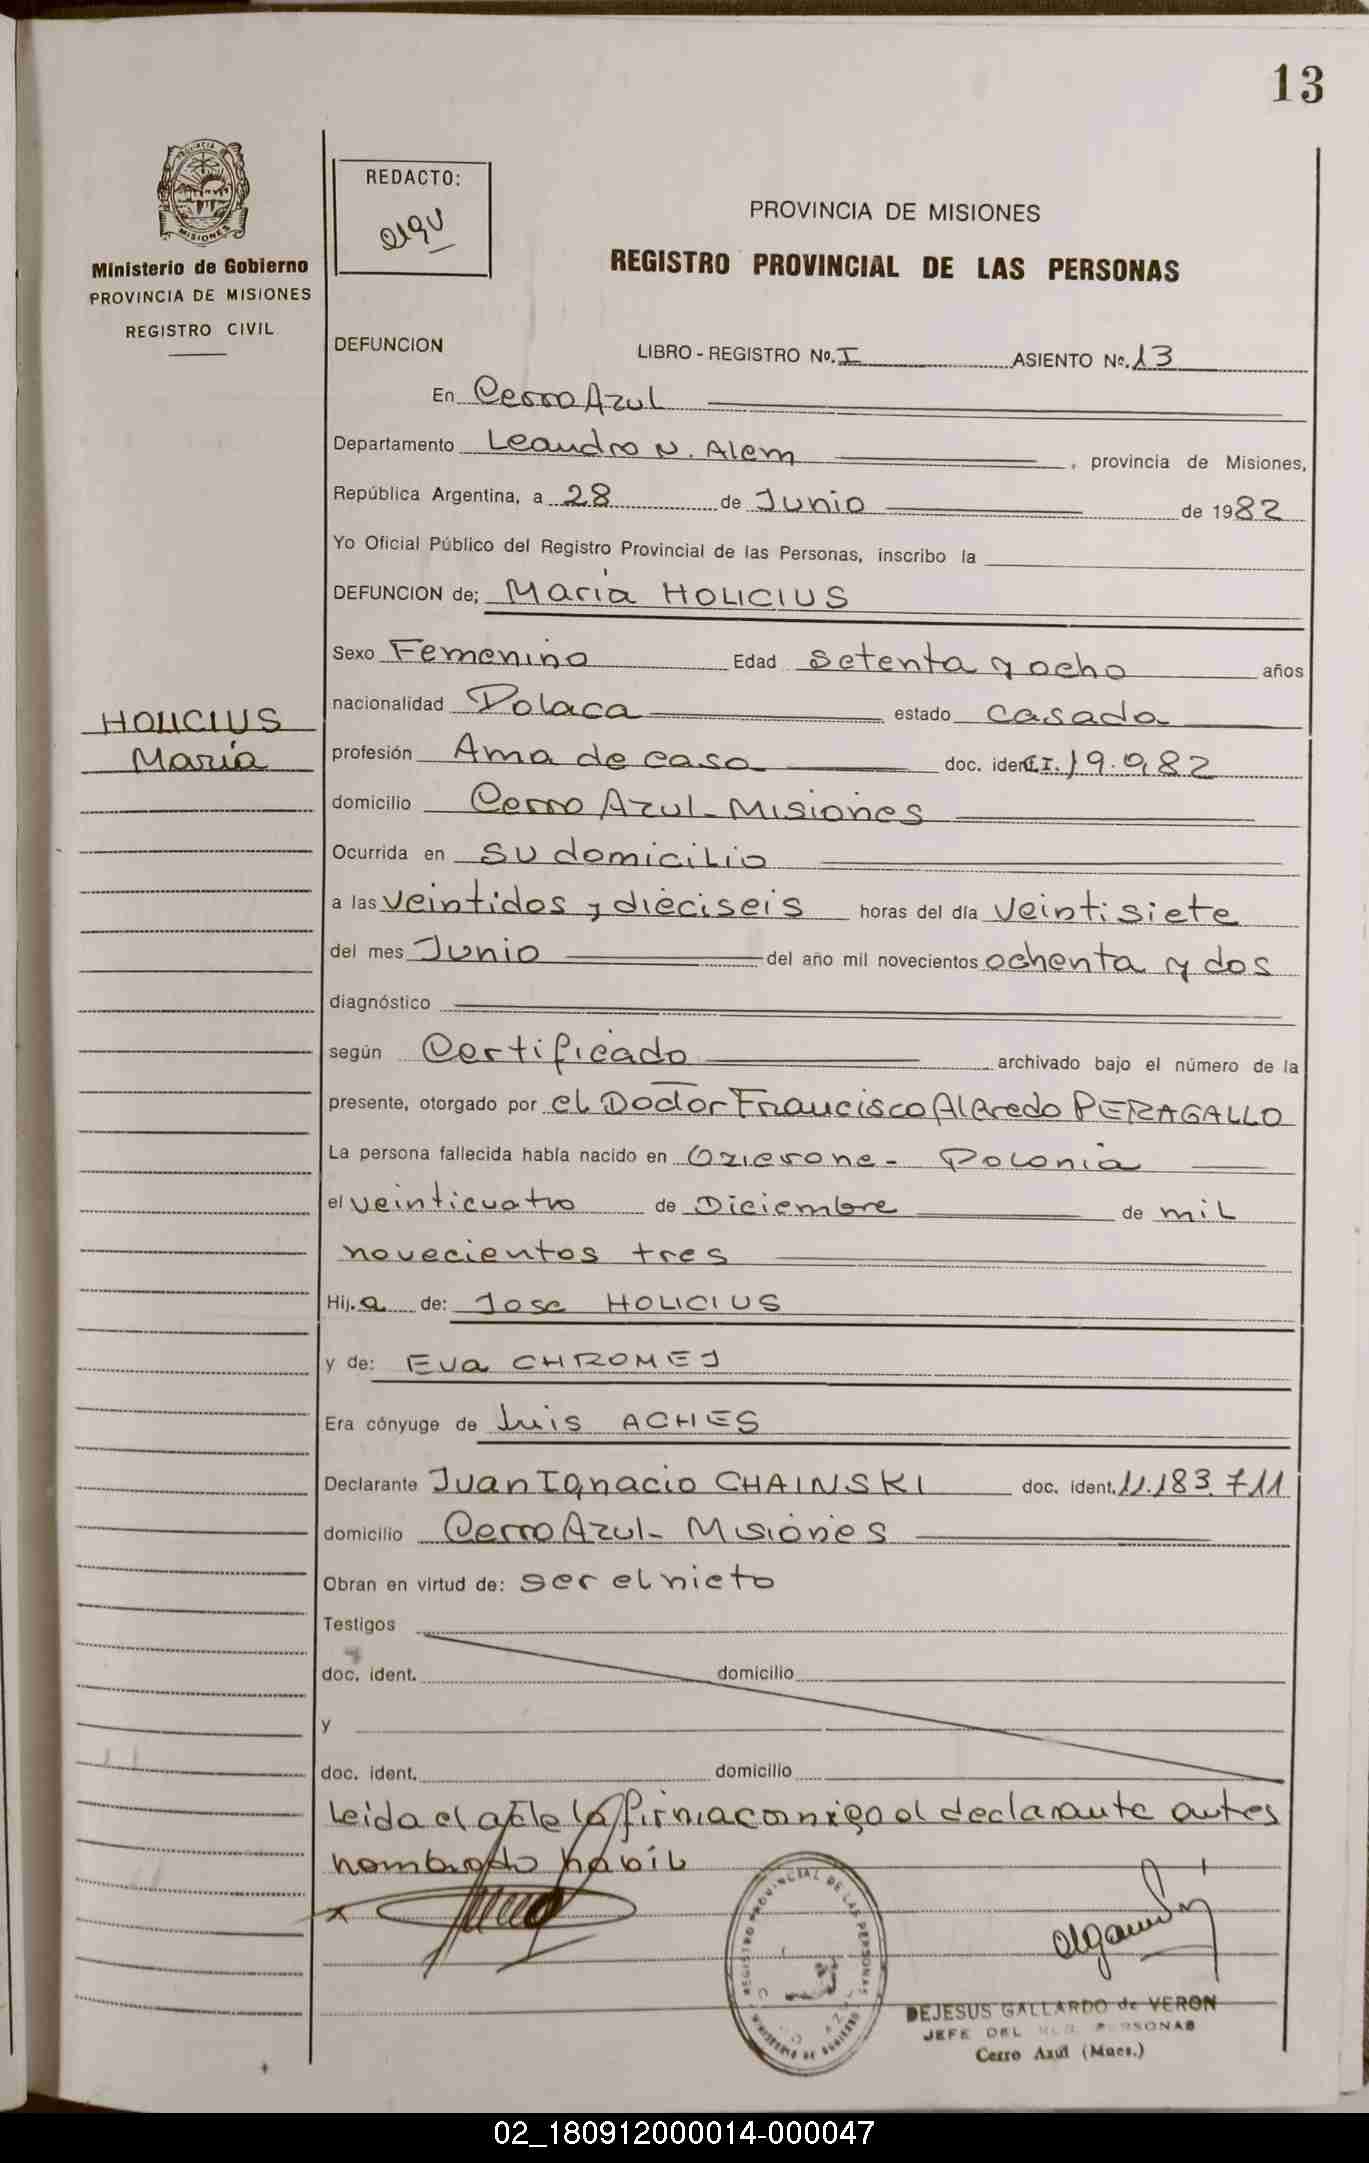 13
PROVINCIA DE
MISIONES
Ministerio de Gobierno
PROVINCIA DE MISIONES
REGISTRO CIVIL
REDACTO:
PROVINCIA DE MISIONES
REGISTRO PROVINCIAL DE LAS PERSONAS
DEFUNCION LIBRO - REGISTRO No. I ASIENTO No. 13
En Cerro Azul
Departamento Leandro N. Alem, provincia de Misiones,
República Argentina, a 28 de Junio de 1982
Yo Oficial Público del Registro Provincial de las Personas, inscribo la
DEFUNCION de; Maria HOLICIUS
Sexo Femenino Edad setenta y ocho años
nacionalidad Polaca estado casada
HOLICIUS
Maria
profesión Ama de casa doc. ident. C.I. 19.982
domicilio Cerro Azul - Misiones
Ocurrida en su domicilio
a las veintidos y dieciseis horas del día veintisiete
del mes Junio del año mil novecientos ochenta y dos
diagnóstico
según Certificado archivado bajo el número de la
presente, otorgado por el Doctor Francisco Alfredo PERAGALLO
La persona fallecida había nacido en Ozierone - Polonia
el veinticuatro de Diciembre de mil
novecientos tres
Hij.a de: Jose HOLICIUS
y de: Eva CHROMEJ
Era cónyuge de Luis ACHES
Declarante Juan Ignacio CHAINSKI doc. ident. 11.183.711
domicilio Cerro Azul - Misiones
Obran en virtud de: ser el nieto
Testigos
doc. ident. domicilio
y
doc. ident. domicilio
Leida el acta la firma conmigo el declarante antes
nombrado habil
x
REGISTRO PROVINCIAL DE LAS PERSONAS
MINISTERIO DE GOBIERNO
DEJESUS GALLARDO de VERON
JEFE DEL REG. PERSONAS
Cerro Azul (Mnes.)
02_180912000014-000047